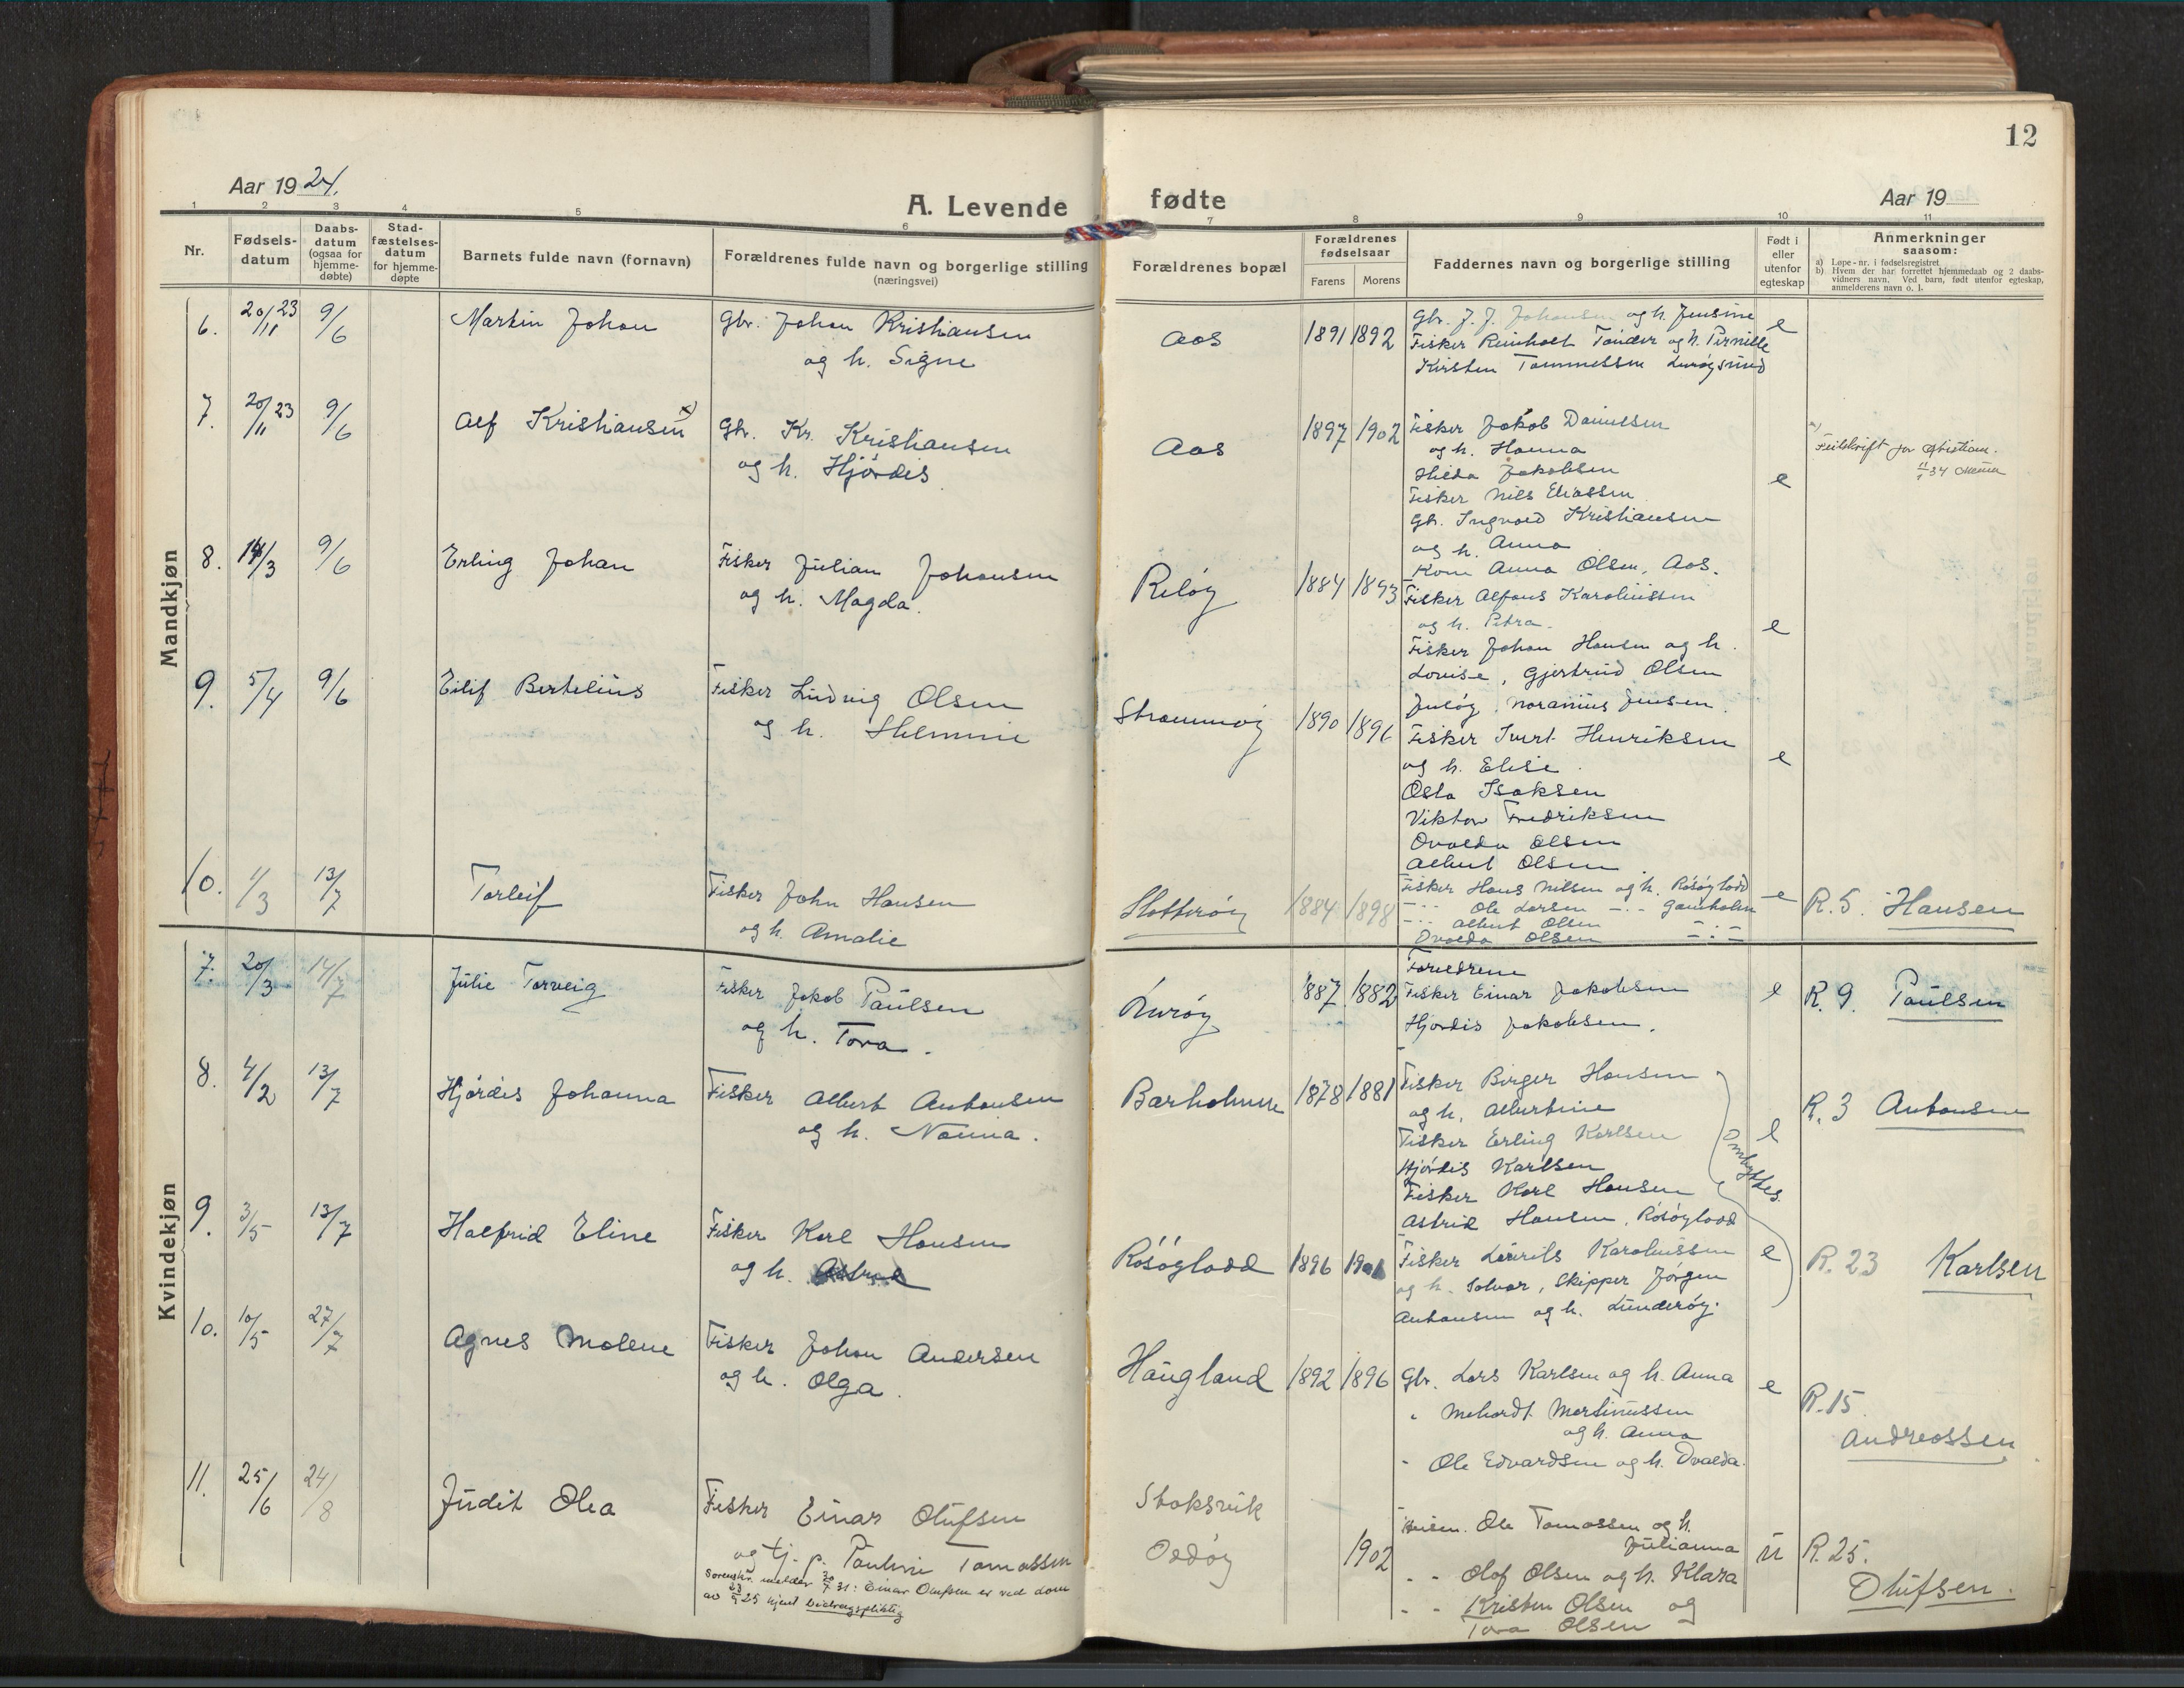 12
Aar 1924.
A. Levende fødte
Aar 19
1 2 3 4 5 6 7 8 9 10 11
Nr.
Fødsels-
datum
Daabs-
datum
(ogsaa for
hjemme-
døbte)
Stad-
fæstelses-
datum
for hjemme-
døpte
Barnets fulde navn (fornavn)
Forældrenes fulde navn og borgerlige stilling
(næringsvei)
Forældrenes bopæl
Forældrenes
fødselsaar
Farens Morens
Faddernes navn og borgerlige stilling
Født i
eller
utenfor
egteskap
Anmerkninger
saasom:
a) Løpe-nr. i fødselsregistret
b) Hvem der har forrettet hjemmedaab og 2 daabs-
vidners navn. Ved barn, født utenfor egteskap,
anmelderens navn o. l.
Mandkjøn
6. 20/11 23 9/6 Martin Johan Gbr. Johan Kristiansen
og h. Signe
Aos 1891 1892 Gbr. J. J. Johansen og h. Jensine e
Fisker Reinholt Tønder og h. Pernille
Kirsten Tommelsen Lurøysund
7. 20/11 23 9/6 Alf Kristiansen x) Gbr. Kr. Kristiansen
og h. Hjørdis
Aos 1897 1902 Fisker Jakob Danielsen
og h. Hanna
Hilda Jakobsen
Fisker Nils Eliassen e
Gbr. Ingvald Kristiansen
og h. Anna
Kone Anna Olsen, Aos.
x)
Feilskrift for Kristian.
8. 14/3 9/6 Erling Johan Fisker Julian Johansen
og h. Magda.
Reløy 1884 1893 Fisker Alfons Karoliussen
og h. Petra. e
Fisker Johan Hansen og h.
Lovise, Gjertrud Olsen
9. 5/4 9/6 Eilif Bertelius Fisker Ludvig Olsen
og h. Helmine
Strømmøy 1890 1896 Fisker Ivert Henriksen
og h. Elise. e
Osla Isaksen
Viktor Fredriksen
Ovalda Olsen
Albert Olsen
10. 1/3 13/7 Torleif Fisker John Hansen
og h. Amalie
Slotterøy 1884 1898 Fisker Hans Nilsen og h. Røsøylodd e
-"- Ole Larsen -"- Gamholm
-"- Albert Olsen
Ovalda Olsen -"-
R. 5. Hansen
Kvindekjøn
7. 20/3 14/7 Julie Torveig Fisker Jakob Paulsen
og h. Tora.
Lurøy 1887 1882 Foreldrene
Fisker Einar Jakobsen e
Hjordis Jakobsen.
R. 9. Paulsen
8. 4/2 13/7 Hjørdis Johanna Fisker Albert Antonsen
og h. Nanna.
Barholmen 1878 1881 Fisker Birger Hansen
og h. Albertine
Fisker Erling Karlsen e
Hjørdis Karlsen
Fisker Karl Hansen
Astrid Hansen, Røsøylodd
ombyttes.
R. 3 Antonsen
9. 3/5 13/7 Halfrid Eline Fisker Karl Hansen
og h. Astrid
Røsøylodd 1896 1901 Fisker Laurits Karoliussen e
og h. Solvor, Skipper Jørgen
Antonsen og h. Lunderøy.
R. 23 Karlsen
10. 10/5 27/7 Agnes Molene Fisker Johan Andersen
og h. Olga.
Haugland 1892 1896 Gbr. Lars Karlsen og h. Anna e
" Mehardt Martinussen
og h. Anna
" Ole Edvardsen og h. Ovalda.
R. 15
Andreassen
11. 25/6 24/8 Judit Olea Fisker Einar Olufsen
og tj. p. Pauline Tomassen
Sorenskr. melder 30/7 31: Einar Olufsen er ved dom
av 23/5 25 kjent bidragspliktig
Stoksvik
Oddøy 1902
Ole Tomassen og h.
Julianna
" " Olof Olsen og h. Klara
" " Kristen Olsen og
Tora Olsen
u R. 25.
Olufsen.